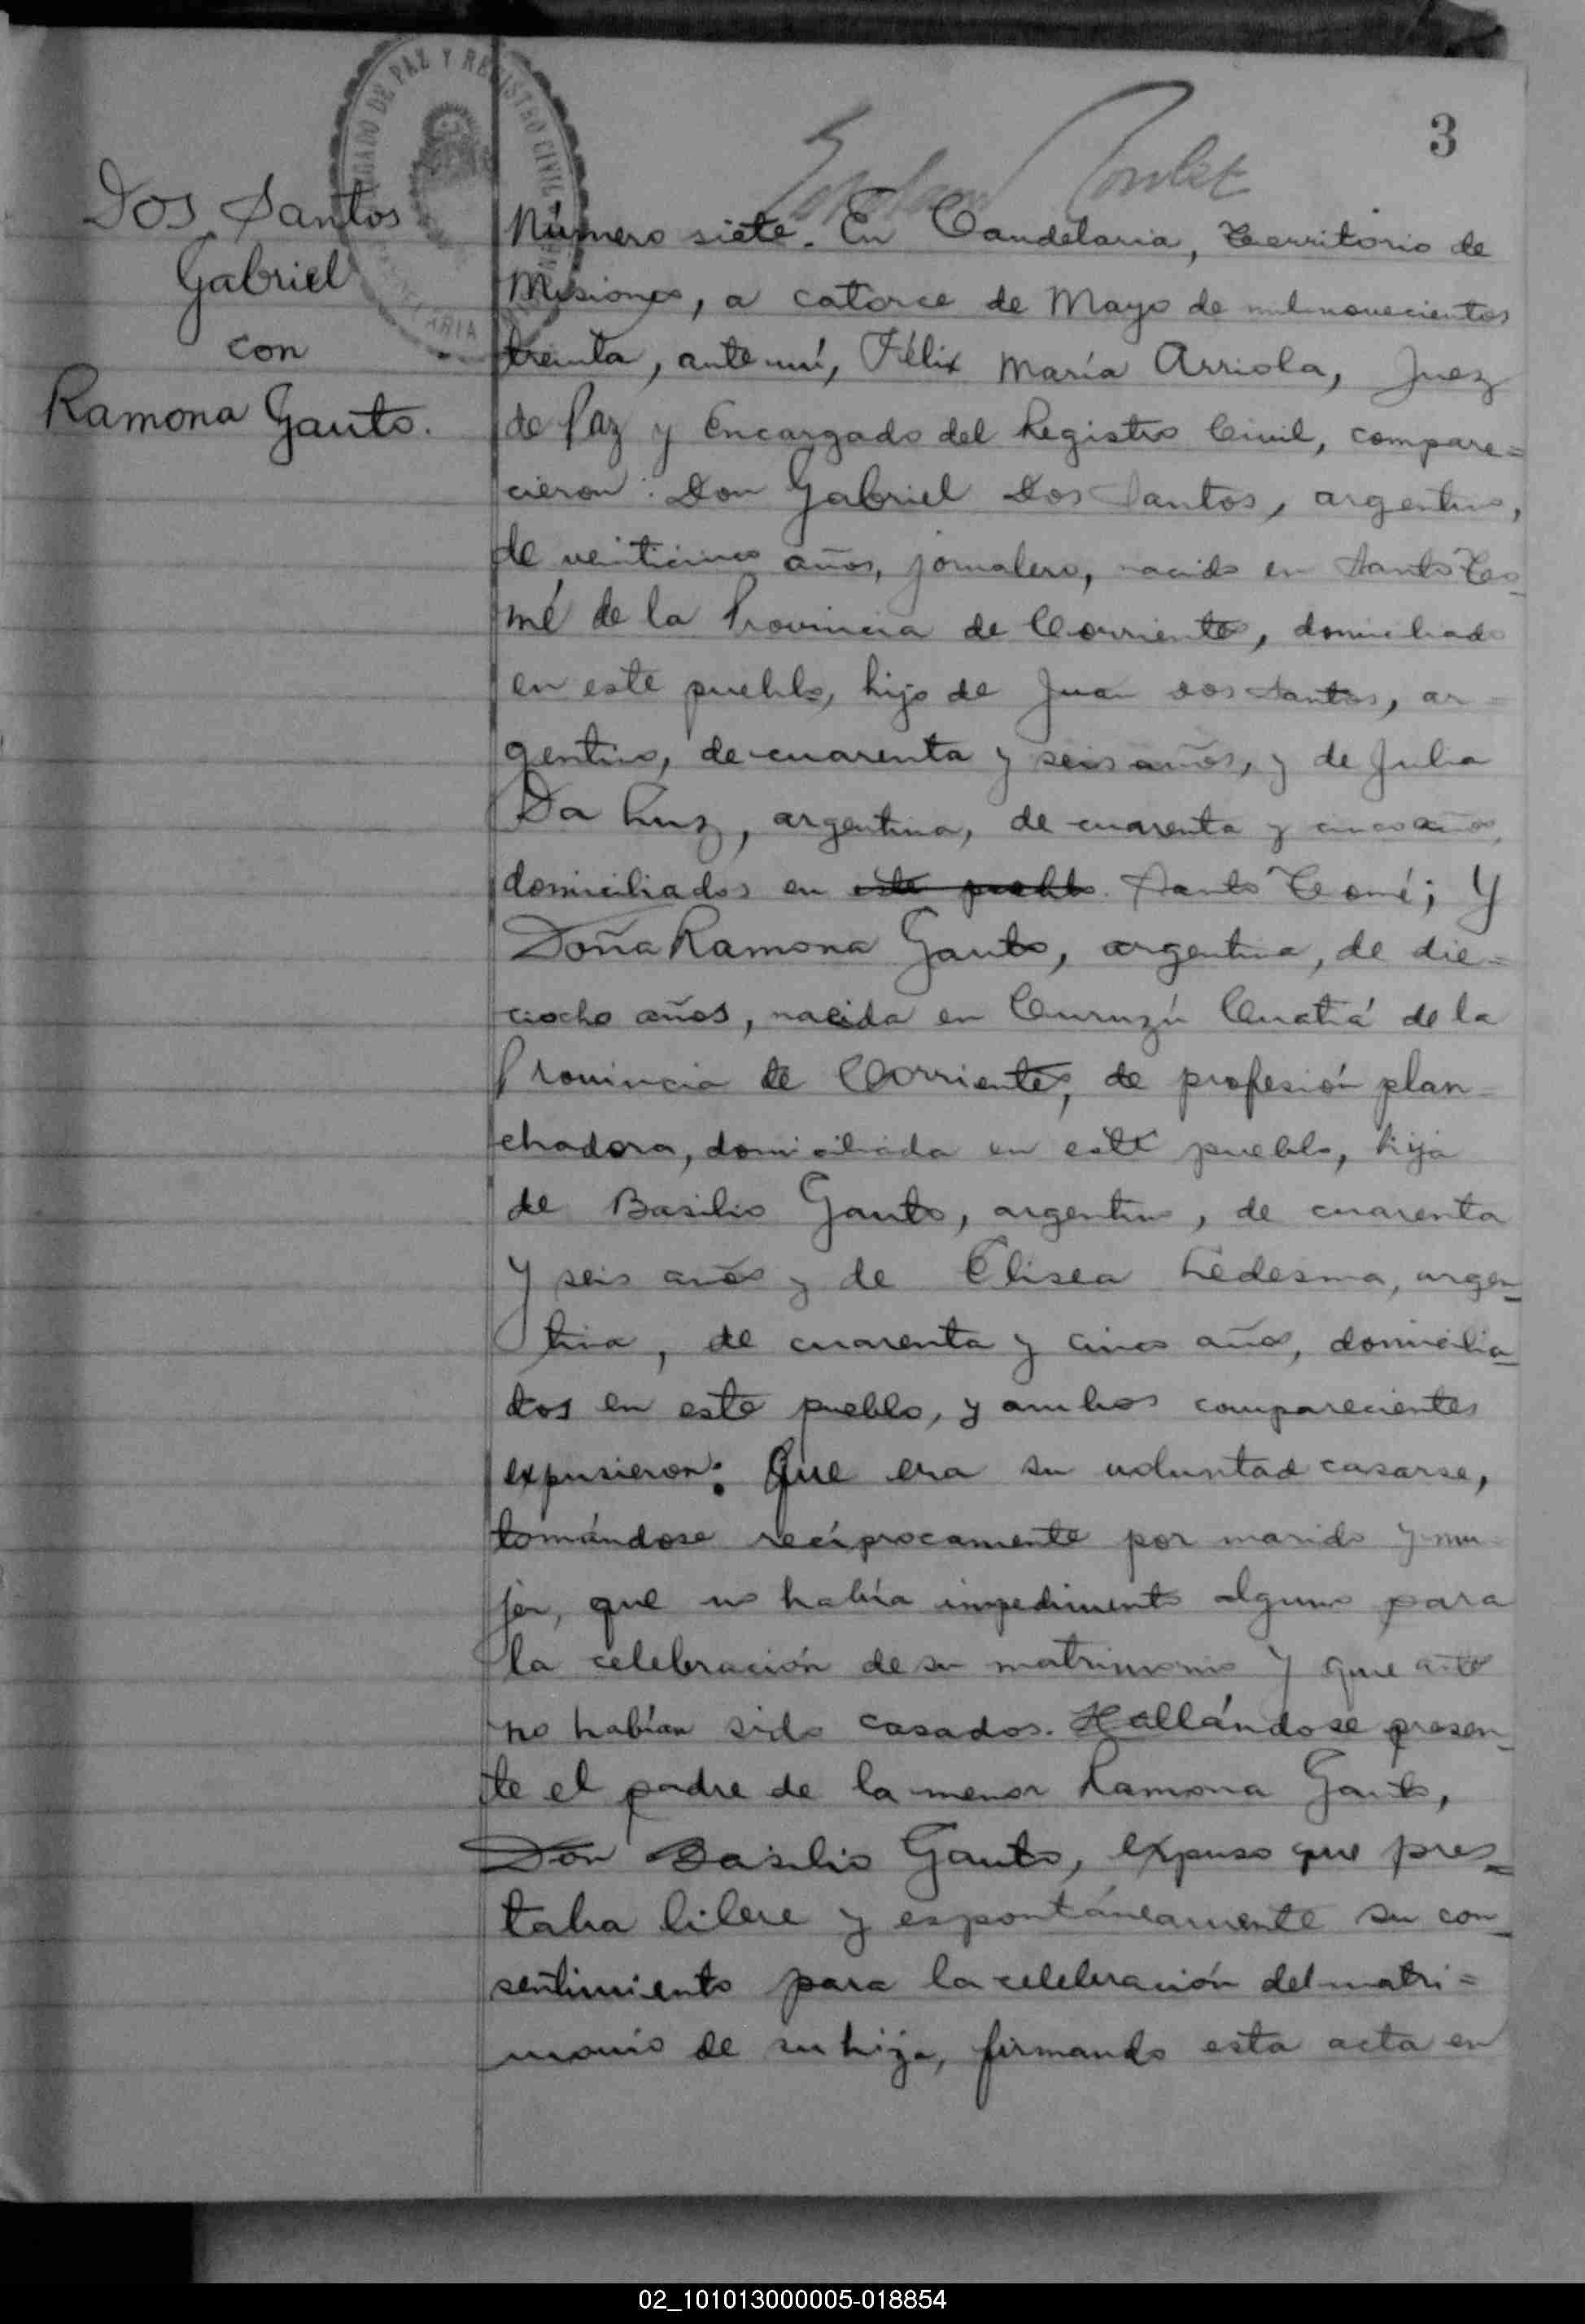 3
JUZGADO DE PAZ Y REGISTRO CIVIL
Dos Santos
Gabriel
con
Ramona Gauto.
Número siete. En Candelaria, Territorio de
Misiones, a catorce de Mayo de mil novecientos
treinta, ante mí, Félix María Arriola, Juez
de Paz y Encargado del Registro Civil, compare=
cieron: Don Gabriel Dos Santos, argentino,
de veinticinco años, jornalero, nacido en Santo To-
mé de la Provincia de Corrientes, domiciliado
en este pueblo, hijo de Juan dos Santos, ar=
gentino, de cuarenta y seis años, y de Julia
Da Luz, argentina, de cuarenta y cinco años,
domiciliados en este pueblo Santo Tomé; Y
Doña Ramona Gauto, argentina, de die=
ciocho años, nacida en Curuzú Cuatiá de la
Provincia de Corrientes, de profesión plan-
chadora, domiciliada en este pueblo, hija
de Basilio Gauto, argentino, de cuarenta
y seis años y de Elisea Ledesma, argen-
tina, de cuarenta y cinco años, domicilia-
dos en este pueblo, y ambos comparecientes
expusieron: Que era su voluntad casarse,
tomándose recíprocamente por marido y mu-
jer, que no había impedimento alguno para
la celebración de su matrimonio y que ante
no habían sido casados. Hallándose presen-
te el padre de la menor Ramona Gauto,
Don Basilio Gauto, expuso que pres=
taba libre y espontáneamente su con-
sentimiento para la celebración del matri=
monio de su hija, firmando esta acta en
02_101013000005-018854